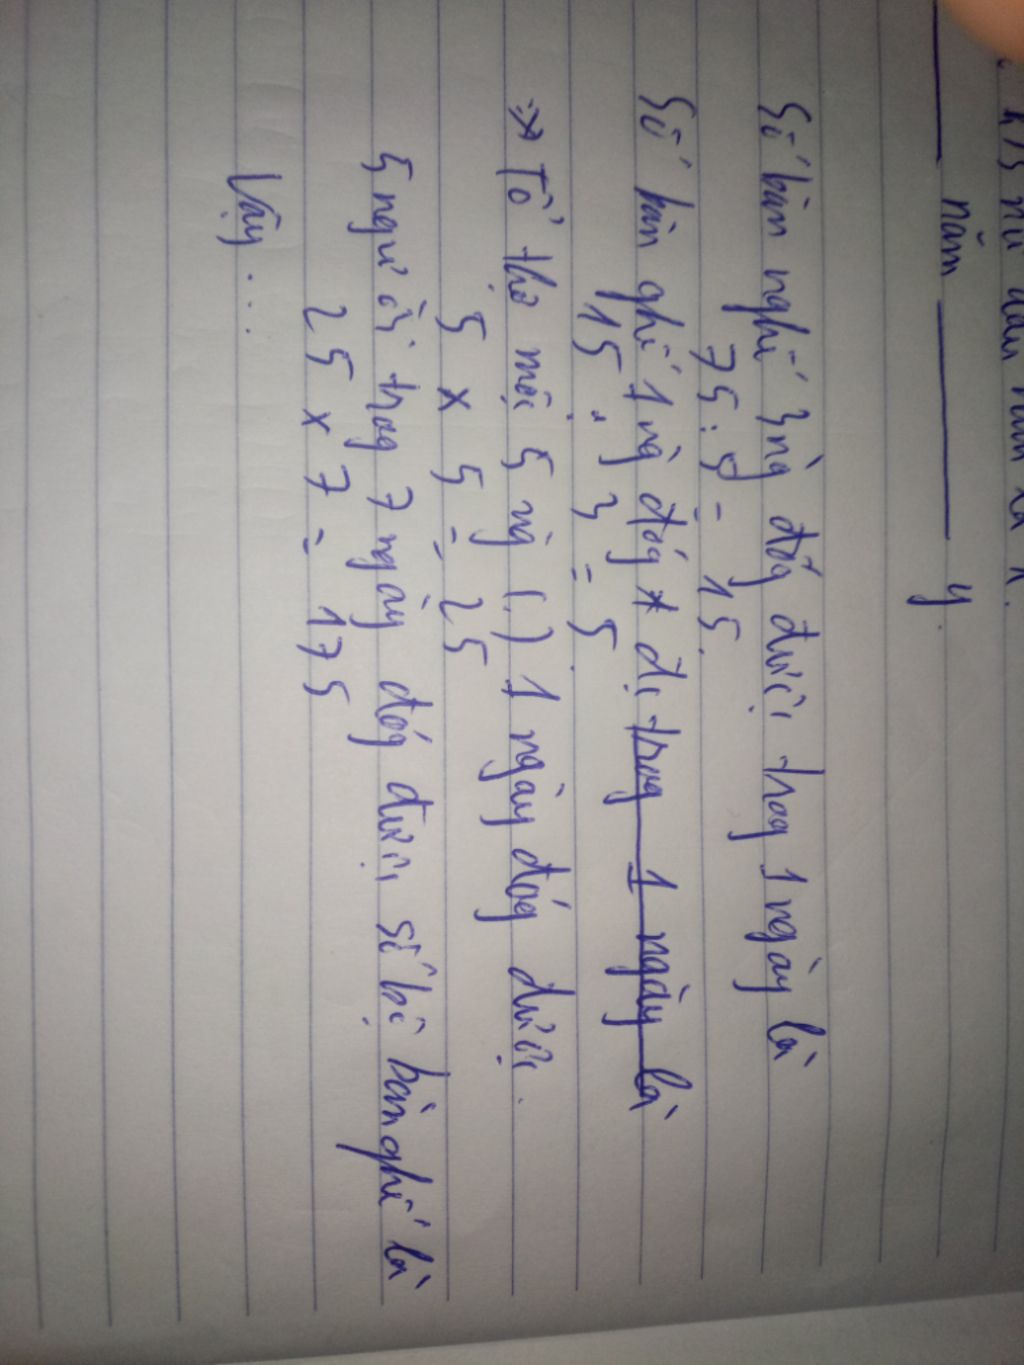 h/s nữ đầu năm là x.
năm y.
Số bàn nghế 3 ng đóg được trog 1 ngày là
75 : 5 = 15.
Số bàn ghế 1 ng đóg đc trog 1 ngày là
15 : 3 = 5
=> Tổ thợ mộc 5 ng (.) 1 ngày đóg được.
5 x 5 = 25
5 người trog 7 ngày đóg được số bộ bàn ghế là
25 x 7 = 175
Vậy...